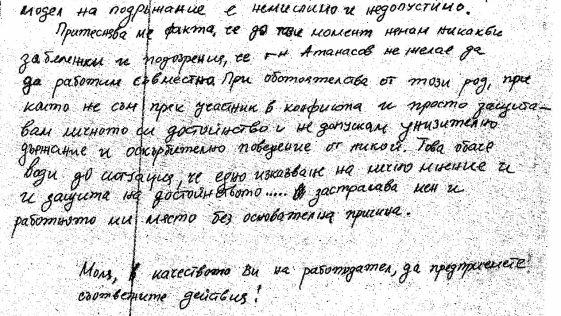 модел на подържание е немислимо и недопустимо.
Притеснява ме факта, че до този момент немам никакви
забележки и подозрения, че г-н Атанасов не желае да
да работим съвместна. При обстоятелства от този род, при
които не съм пряк участник в конфликта и просто защита-
вам личното си достойнство и не допускам унизително
държание и оскърбително поведение от никой. Това обаче
води до ситуация, че едно изказване на лично мнение и
и защита на достойнството..... застрашава мен и
работното ми място без основателна причина.
Моля, в качеството Ви на работодател, да предприемете
съответните действия!